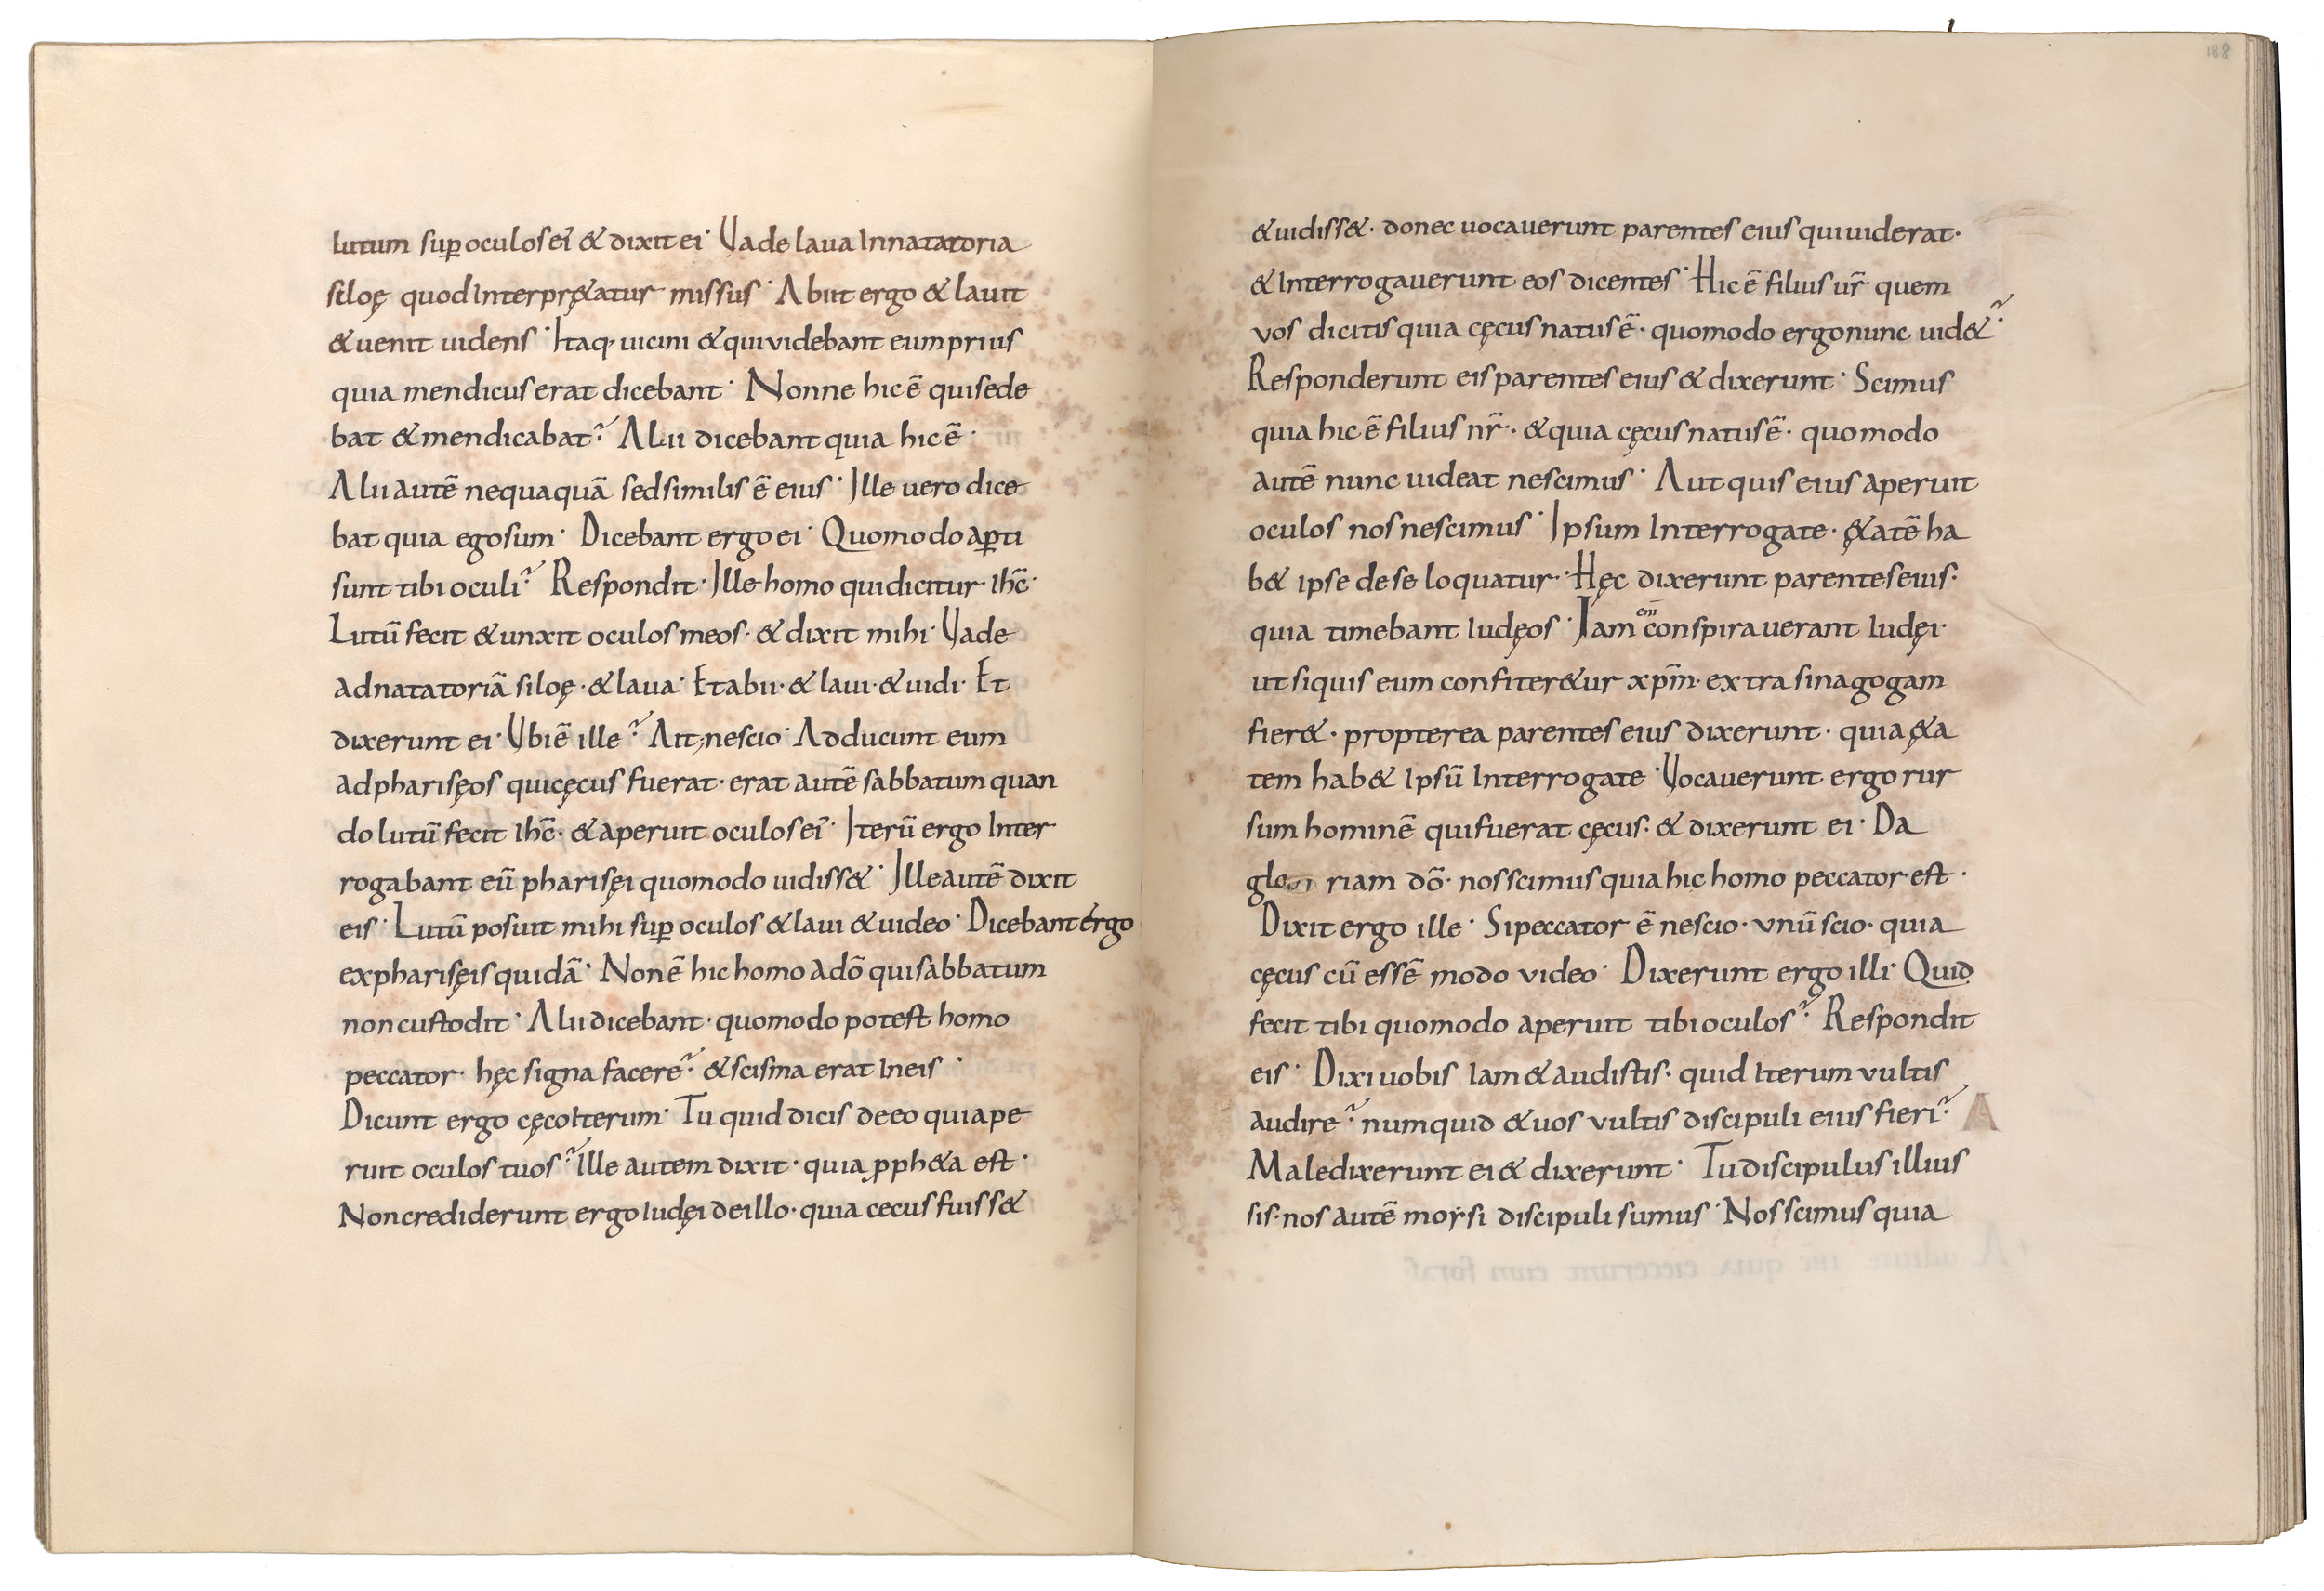 lutum sup oculos ei & dixit ei· Vade laua Innatatoria
siloę quod Interpr&atur missus· Abiit ergo & lauit
& uenit uidens· Itaq· uicini & qui videbant eum prius
quia mendicus erat dicebant· Nonne hic ē qui sede
bat & mendicabat? Alii dicebant quia hic ē·
Alii autē nequaquā sed similis ē eius· Ille vero dice
bat quia ego sum· Dicebant ergo ei· Quomodo apti
sunt tibi oculi? Respondit· Ille homo qui dicitur ihc̄·
Lutū fecit & unxit oculos meos· & dixit mihi· Vade
ad natatoriā siloę· & laua· Et abii· & laui· & uidi· Et
dixerunt ei· Vbi ē ille? Ait; nescio· Adducunt eum
ad pharisęos qui cęcus fuerat· erat autē sabbatum quan
do lutū fecit ihc̄· & aperuit oculos ei· Iterū ergo Inter
rogabant eū pharisęi quomodo uidiss&· Ille autē dixit
eis· Lutū posuit mihi sup oculos & laui & uideo· Dicebant ergo
ex pharisęis quidā· Non ē hic homo a dō qui sabbatum
non custodit· Alii dicebant· quomodo potest homo
peccator· hęc signa facere? & scisma erat In eis·
Dicunt ergo cęco Iterum· Tu quid dicis de eo qui ape
ruit oculos tuos? Ille autem dixit· quia pph&a est·
Non crediderunt ergo Iudęi de illo· quia cecus fuiss&
& uidiss&· donec uocauerunt parentes eius qui uiderat·
& Interrogauerunt eos dicentes· Hic ē filius ur̄ quem
vos dicitis quia cęcus natus ē· quomodo ergo nunc uid&?
Responderunt eis parentes eius & dixerunt· Scimus
quia hic ē filius nr̄· & quia cęcus natus ē· quomodo
autē nunc uideat nescimus· Aut quis eius aperuit
oculos nos nescimus· Ipsum Interrogate· &atē ha
b& ipse de se loquatur· Hęc dixerunt parentes eius·
quia timebant Iudęos· Iam em̄ conspirauerant Iudęi·
ut si quis eum confiter&ur xpm̄· extra sinagogam
fier&· propterea parentes eius dixerunt· quia &a
tem hab& Ipsū Interrogate· Vocauerunt ergo rur
sum hominē qui fuerat cęcus· & dixerunt ei· Da
glo riam dō· nos scimus quia hic homo peccator est·
Dixit ergo ille· Si peccator ē nescio· vnū scio· quia
cęcus cū essē modo video· Dixerunt ergo illi· Quid
fecit tibi quomodo aperuit tibi oculos? Respondit
eis· Dixi uobis Iam & audistis· quid Iterum vultis
audire? numquid & uos vultis discipuli eius fieri?
Maledixerunt ei & dixerunt· Tu discipulus illius
sis· nos autē moysi discipuli sumus· Nos scimus quia